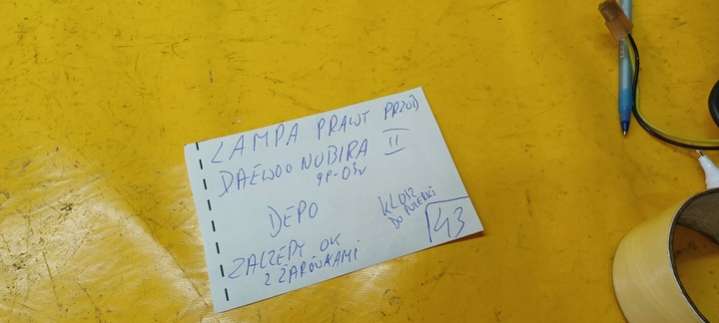 LAMPA PRAWY PRZÓD
DAEWOO NUBIRA II
99-03r
DEPO
KLOSZ
DO POLERKI
ZACZEPY OK
Z ŻARÓWKAMI
43